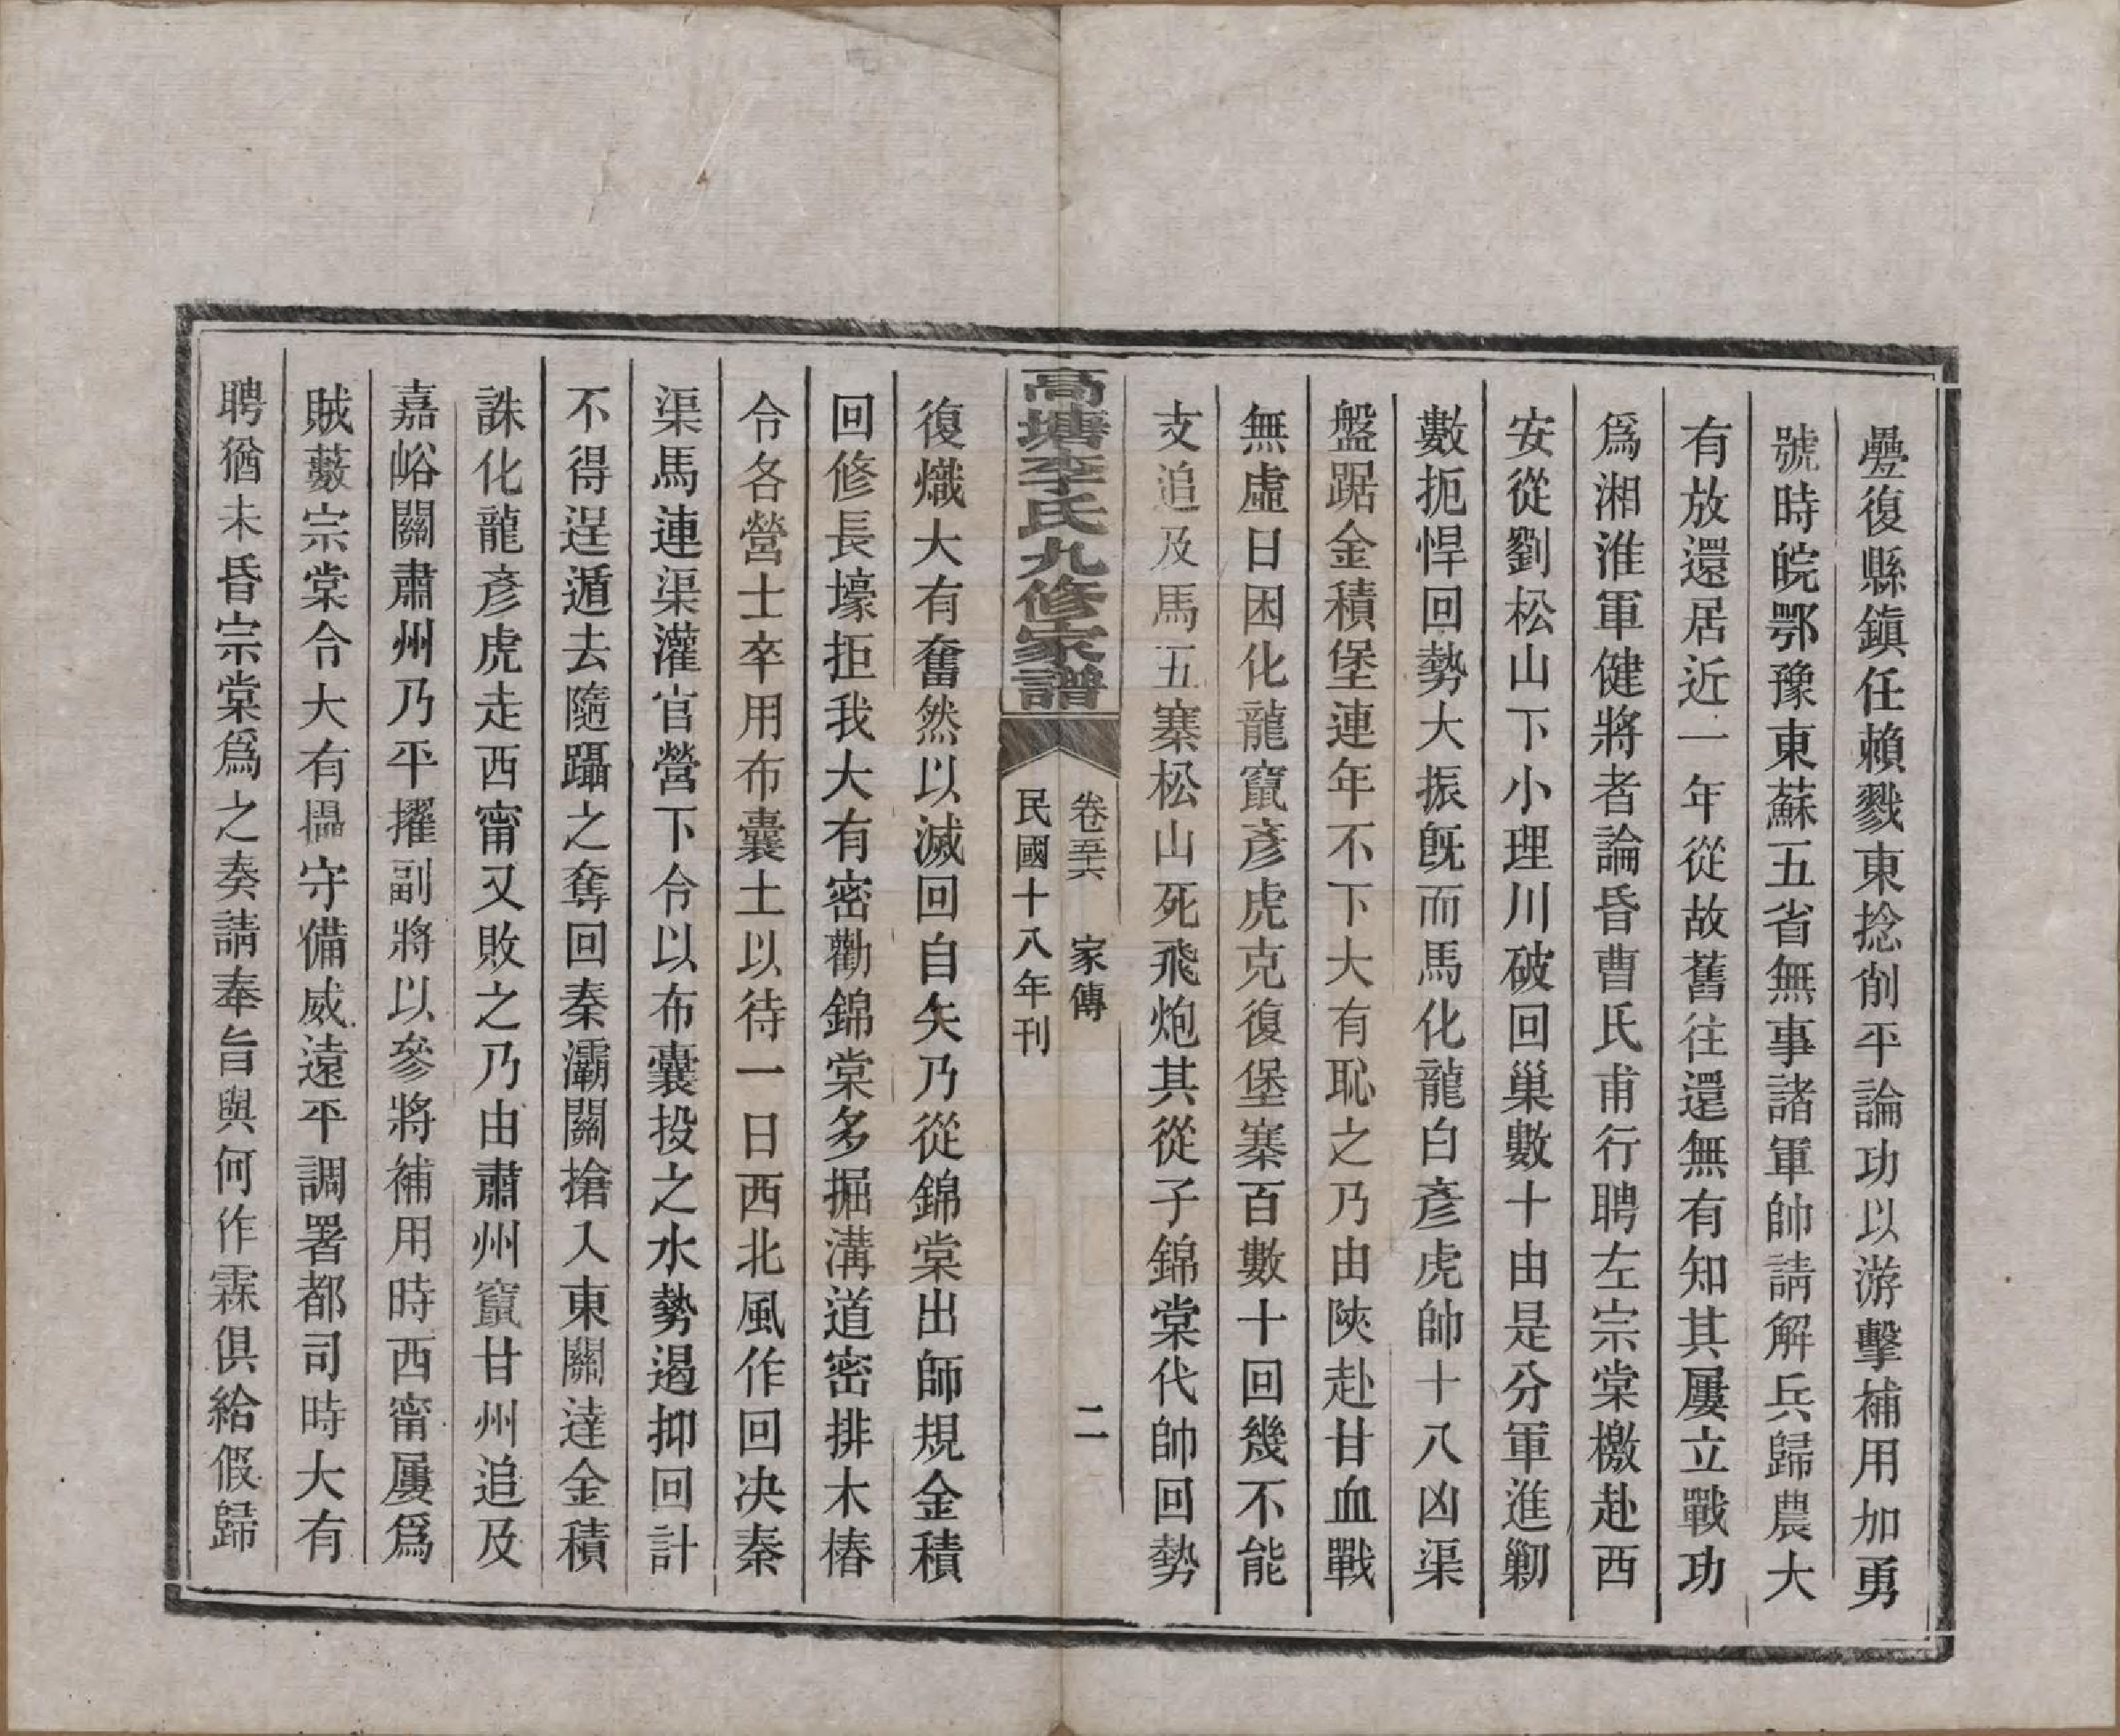 疊復縣鎮任賴戮東捻削平論功以游擊補用加勇
號時皖鄂豫東蘇五省無事諸軍帥請解兵歸農大
有放還居近一年從故舊往還無有知其屢立戰功
爲湘淮軍健將者論昏曹氏甫行聘左宗棠檄赴西
安從劉松山下小理川破回巢數十由是分軍進剿
數扼悍回勢大振旣而馬化龍白彥虎帥十八凶渠
盤踞金積堡連年不下大有恥之乃由陝赴甘血戰
無虛日困化龍竄彥虎克復堡寨百數十回幾不能
支追及馬五寨松山死飛炮其從子錦棠代帥回勢
高塘李氏九修家譜
卷五六 家傳 二
民國十八年刊
復熾大有奮然以滅回自矢乃從錦棠出師規金積
回修長壕拒我大有密勸錦棠多掘溝道密排木樁
令各營士卒用布囊土以待一日西北風作回决秦
渠馬連渠灌官營下令以布囊投之水勢遏抑回計
不得逞遁去隨躡之奪回秦灞關搶入東關達金積
誅化龍彥虎走西甯又敗之乃由肅州竄甘州追及
嘉峪關肅州乃平擢副將以參將補用時西甯屢爲
賊藪宗棠令大有摄守備威遠平調署都司時大有
聘猶未昏宗棠爲之奏請奉旨與何作霖俱給假歸